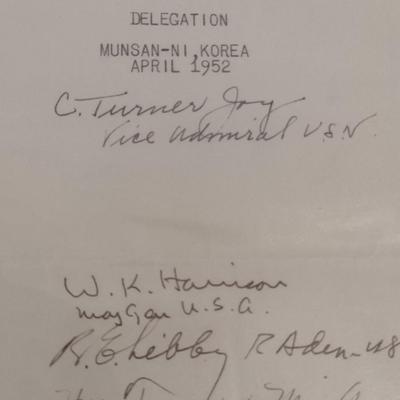 DELEGATION
MUNSAN-NI, KOREA
APRIL 1952
C. Turner Joy
Vice Admiral USN.
W. K. Harrison
Maj Gen U.S.A.
R. E. Libby R Adm-US